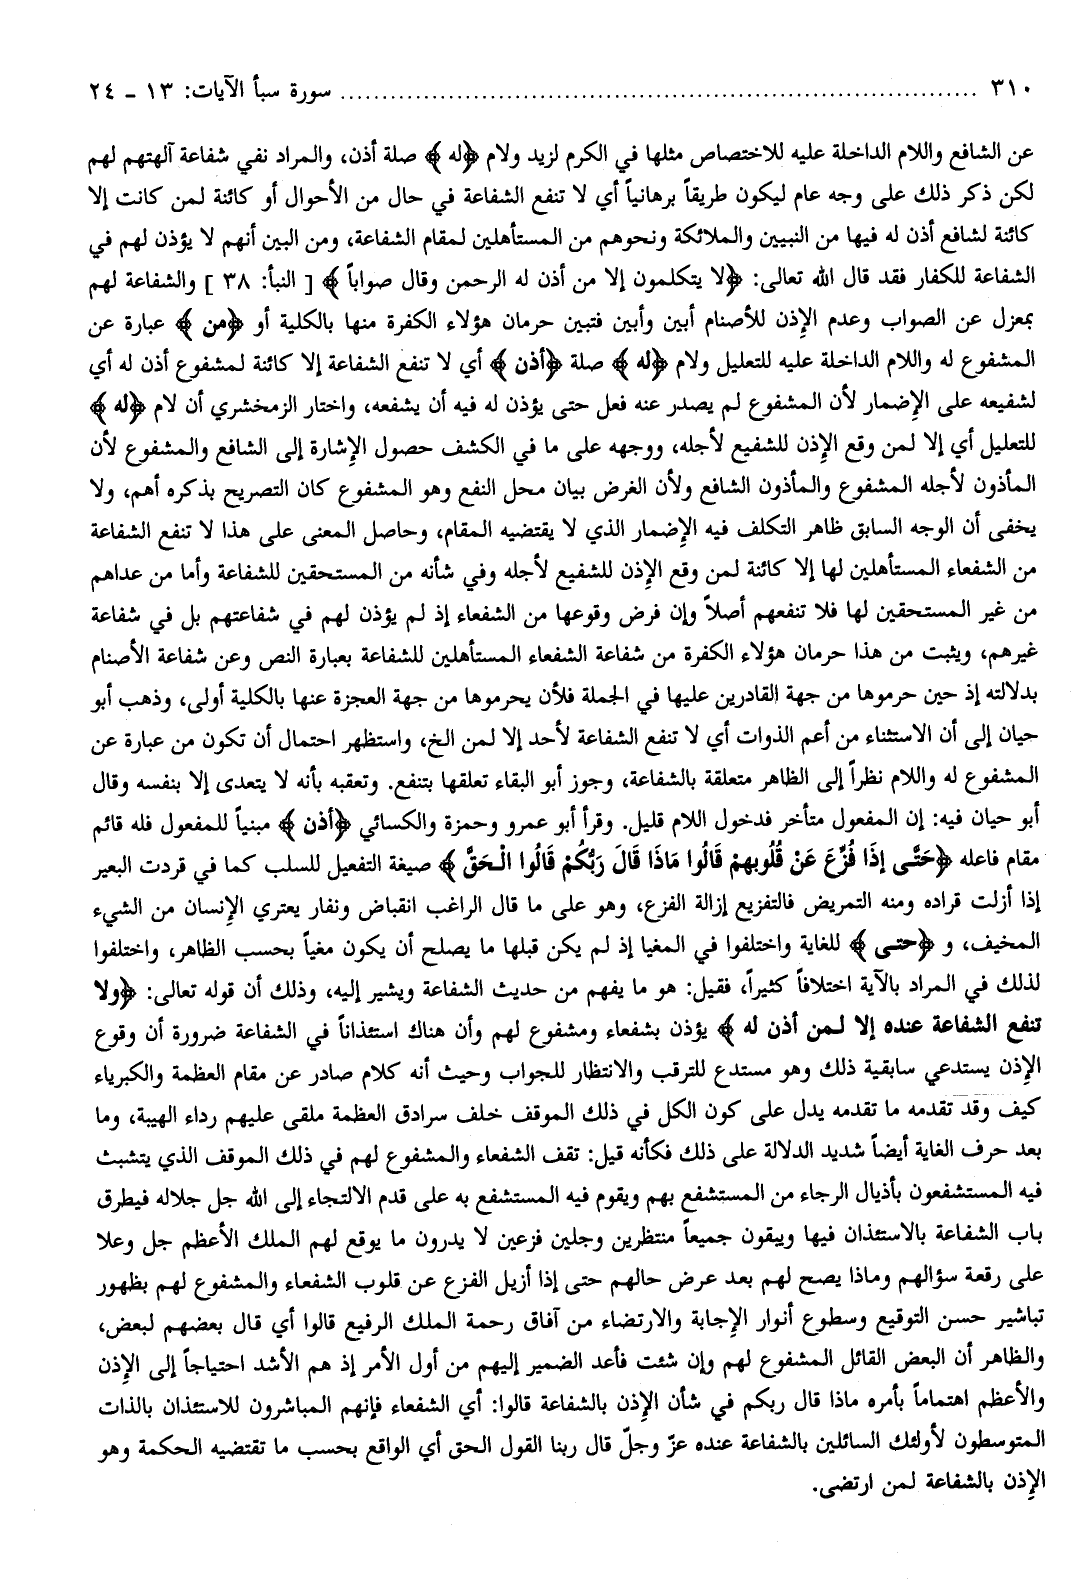 ٣١٠ ........................ سورة سبأ الآيات: ١٣ - ٢٤
عن الشافع واللام الداخلة عليه للاختصاص مثلها في الكرم لزيد ولام ﴿له﴾ صلة أذن، والمراد نفي شفاعة آلهتهم لهم
لكن ذكر ذلك على وجه عام ليكون طريقاً برهانياً أي لا تنفع الشفاعة في حال من الأحوال أو كائنة لمن كانت إلا
كائنة لشافع أذن له فيها من النبيين والملائكة ونحوهم من المستأهلين لمقام الشفاعة، ومن البين أنهم لا يؤذن لهم في
الشفاعة للكفار فقد قال الله تعالى: ﴿لا يتكلمون إلا من أذن له الرحمن وقال صواباً﴾ [ النبأ: ٣٨ ] والشفاعة لهم
بمعزل عن الصواب وعدم الإذن للأصنام أبين وأبين فتبين حرمان هؤلاء الكفرة منها بالكلية أو ﴿من﴾ عبارة عن
المشفوع له واللام الداخلة عليه للتعليل ولام ﴿له﴾ صلة ﴿أذن﴾ أي لا تنفع الشفاعة إلا كائنة لمشفوع أذن له أي
لشفيعه على الإضمار لأن المشفوع لم يصدر عنه فعل حتى يؤذن له فيه أن يشفعه، واختار الزمخشري أن لام ﴿له﴾
للتعليل أي إلا لمن وقع الإذن للشفيع لأجله، ووجهه على ما في الكشف حصول الإشارة إلى الشافع والمشفوع لأن
المأذون لأجله المشفوع والمأذون الشافع ولأن الغرض بيان محل النفع وهو المشفوع كان التصريح بذكره أهم، ولا
يخفى أن الوجه السابق ظاهر التكلف فيه الإضمار الذي لا يقتضيه المقام، وحاصل المعنى على هذا لا تنفع الشفاعة
من الشفعاء المستأهلين لها إلا كائنة لمن وقع الإذن للشفيع لأجله وفي شأنه من المستحقين للشفاعة وأما من عداهم
من غير المستحقين لها فلا تنفعهم أصلاً وإن فرض وقوعها من الشفعاء إذ لم يؤذن لهم في شفاعتهم بل في شفاعة
غيرهم، ويثبت من هذا حرمان هؤلاء الكفرة من شفاعة الشفعاء المستأهلين للشفاعة بعبارة النص وعن شفاعة الأصنام
بدلالته إذ حين حرموها من جهة القادرين عليها في الجملة فلأن يحرموها من جهة العجزة عنها بالكلية أولى، وذهب أبو
حيان إلى أن الاستثناء من أعم الذوات أي لا تنفع الشفاعة لأحد إلا لمن الخ، واستظهر احتمال أن تكون من عبارة عن
المشفوع له واللام نظراً إلى الظاهر متعلقة بالشفاعة، وجوز أبو البقاء تعلقها بتنفع. وتعقبه بأنه لا يتعدى إلا بنفسه وقال
أبو حيان فيه: إن المفعول متأخر فدخول اللام قليل. وقرأ أبو عمرو وحمزة والكسائي ﴿أذن﴾ مبنياً للمفعول فله قائم
مقام فاعله ﴿حَتَّى إِذَا فُزِّعَ عَنْ قُلُوبِهِمْ قَالُوا مَاذَا قَالَ رَبُّكُمْ قَالُوا الْحَقَّ﴾ صيغة التفعيل للسلب كما في قردت البعير
إذا أزلت قراده ومنه التمريض فالتفزيع إزالة الفزع، وهو على ما قال الراغب انقباض ونفار يعتري الإنسان من الشيء
المخيف، و ﴿حتى﴾ للغاية واختلفوا في المغيا إذ لم يكن قبلها ما يصلح أن يكون مغياً بحسب الظاهر، واختلفوا
لذلك في المراد بالآية اختلافاً كثيراً، فقيل: هو ما يفهم من حديث الشفاعة ويشير إليه، وذلك أن قوله تعالى: ﴿ولا
تنفع الشفاعة عنده إلا لمن أذن له﴾ يؤذن بشفعاء ومشفوع لهم وأن هناك استئذاناً في الشفاعة ضرورة أن وقوع
الإذن يستدعي سابقية ذلك وهو مستدع للترقب والانتظار للجواب وحيث أنه كلام صادر عن مقام العظمة والكبرياء
كيف وقد تقدمه ما تقدمه يدل على كون الكل في ذلك الموقف خلف سرادق العظمة ملقى عليهم رداء الهيبة، وما
بعد حرف الغاية أيضاً شديد الدلالة على ذلك فكأنه قيل: تقف الشفعاء والمشفوع لهم في ذلك الموقف الذي يتشبث
فيه المستشفعون بأذيال الرجاء من المستشفع بهم ويقوم فيه المستشفع به على قدم الالتجاء إلى الله جل جلاله فيطرق
باب الشفاعة بالاستئذان فيها ويبقون جميعاً منتظرين وجلين فزعين لا يدرون ما يوقع لهم الملك الأعظم جل وعلا
على رقعة سؤالهم وماذا يصح لهم بعد عرض حالهم حتى إذا أزيل الفزع عن قلوب الشفعاء والمشفوع لهم بظهور
تباشير حسن التوقيع وسطوع أنوار الإجابة والارتضاء من آفاق رحمة الملك الرفيع قالوا أي قال بعضهم لبعض،
والظاهر أن البعض القائل المشفوع لهم وإن شئت فأعد الضمير إليهم من أول الأمر إذ هم الأشد احتياجاً إلى الإذن
والأعظم اهتماماً بأمره ماذا قال ربكم في شأن الإذن بالشفاعة قالوا: أي الشفعاء فإنهم المباشرون للاستئذان بالذات
المتوسطون لأولئك السائلين بالشفاعة عنده عزّ وجلّ قال ربنا القول الحق أي الواقع بحسب ما تقتضيه الحكمة وهو
الإذن بالشفاعة لمن ارتضى.